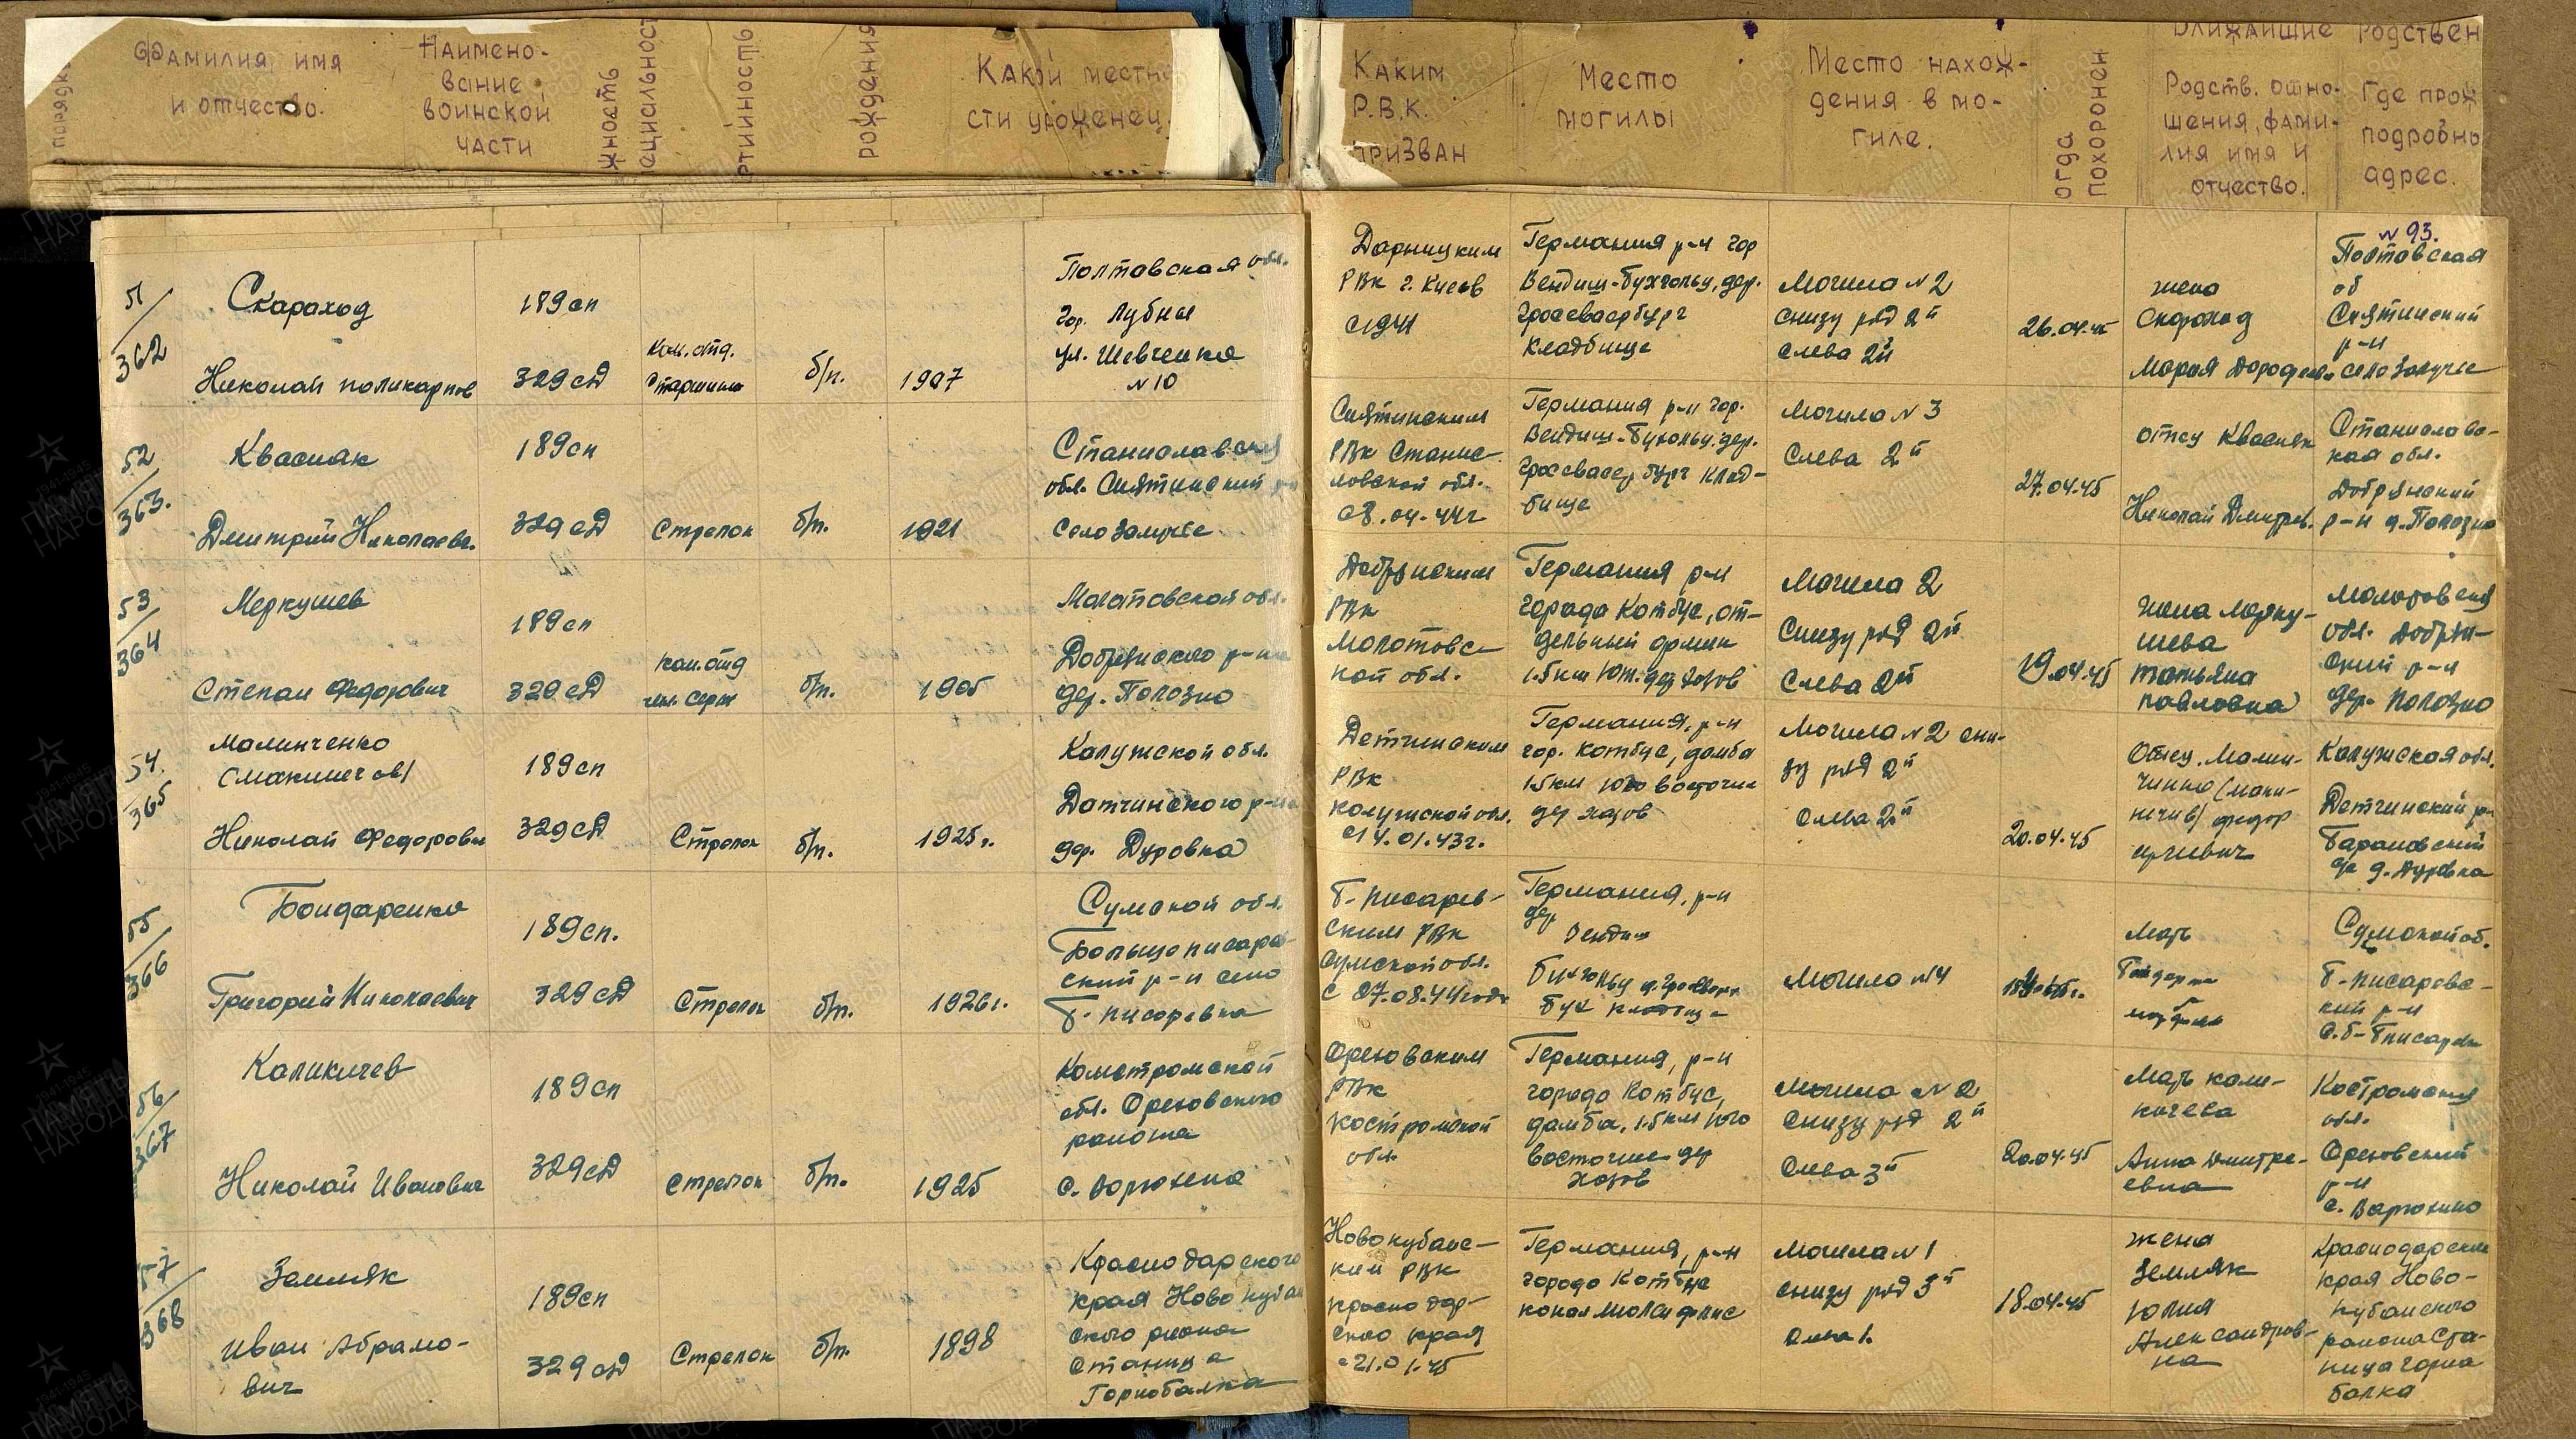 Фамилия, имя
и отчество.
Наимено-
вание
воинской
части
рождения
Какой местно
сти уроженец.
Каким
Р.В.К.
призван
Место
могилы
Место нахож-
дения в мо-
гиле.
похоронен
Ближайшие родствен
Родств. отно-
шения, фами-
лия имя и
отчество.
Где прож
подробно
адрес.
№ 93.
51/362
Скараход
Николай поликарпов
189 сп
329 сд
Ком. отд.
Старшина
б/п.
1907
Полтавская обл.
гор. Лубны
ул. Шевченка
№ 10
Дарницким
РВК г. Киев
Германия р-н гор
Вендиш-Бухгольц, дер.
Гроссвасербург
Кладбище
Могила № 2
снизу ряд 2й
слева 2й
26.04.45
жена
Скороход
Мария Дорофеев.
Полтавская
об
Снятинский
р-н
село Залучье
52/363.
Квасняк
Дмитрий Николаеви.
189 сп
329 сд
Стрелок
б/п.
1921
Станиславская
обл. Снятинский р-н
Село Залучье
Снятинским
РВК Станис-
лавской обл.
08.04.44 г
Германия р-н гор.
Вендиш-Бухольц. дер.
Гроссвасербург клад-
бище
Могила № 3
Слева 2й
27.04.45
отец Квасняк
Николай Дмитрев.
Станиславс-
кая обл.
Добрянский
р-н д. Полозно
53/364
Меркушев
Степан Федорович
189 сп
329 сд
ком. отд
б/п.
1905
Молотовской обл.
Добрянского р-на
дер. Полозно
Добрянским
РВК
Молотовс-
кой обл.
Германия р-н
города Котбус, от-
дельный домик
1.5 км
Могила 2
Снизу ряд 2й
Слева 2й
19.04.45
жена Мерку-
шева
татьяна
павловна
Молотовская
обл. Добрян-
ский р-н
дер. Полозно
54./365
Малинченко
Николай Федорови
189 сп
329 сд
Стрелок
б/п.
1925 г.
Калужской обл.
Датчинского р-на
дер. Дуровка
Детчинским
РВК
калужской обл.
14.01.43 г.
Германия, р-н
гор. Котбус, дамба
1.5 км юго восточне
дер хазов
Могила № 2 сни-
зу ряд 2й
Слева 2й
20.04.45
Калужская обл.
Детчинский р-
Барановский
д. Дуровка
55/366
Бондаренко
Григорий Николаевич
189 сп.
329 сд
Стрелок
б/п.
1926 г.
Сумской обл.
Большеписарев-
ский р-н село
Б. писаревка
Б. писарев-
ским РВК
Сумской обл.
с 27.08.44 года
Германия, р-н
дер
Вендиш
Могила № 4
Мать
Сумской об.
Б. писаревс-
кий р-н
56/367
Каликичев
Николай Иванович
189 сп
329 сд
Стрелок
б/п.
1925
Комстромской
обл. Ореховского
района
Ореховским
РВК
костромской
обл.
Германия, р-н
города Котбус,
дамба, 1.5 км юго
восточне дер
Хазов
Могила № 2
Снизу ряд 2й
Слева 3й
20.04.45
Мать кали-
кичева
Анна Дмитре-
евна
Костромская
обл.
Ореховский
р-н
с. Варюхино
57/368
Земляк
Иван Абрамо-
вич
189 сп
329 сд
Стрелок
б/п.
1898
Краснодарского
края Новокубан
ского района
Станица
Горнобалка
Новокубанс-
кий РВК
Краснодар-
ского края
21.01.45
Германия, р-н
города Котбус
Могила № 1
снизу ряд 3й
Слева 1.
18.04.45
жена
Земляк
Юлия
Александров-
на
Краснодарский
края Ново-
кубанского
района Ста-
ница горна
балка